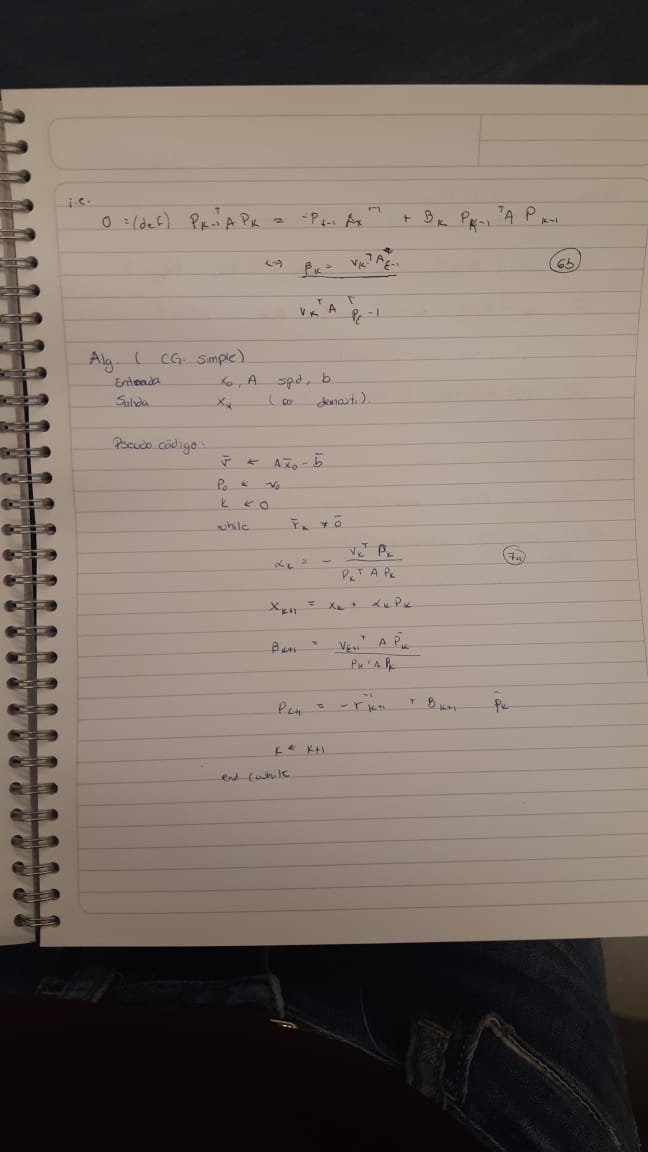 i.e.
0 = (def) P_{K-1}^T A P_K = -P_{k-1} A_x + B_K P_{K-1}^T A P_{K-1}
<-> β_K = V_K^T A
6b
V_K^T A P_{k}-1
Alg. ( CG. simple)
Entrada x_0, A spd, b
Salida x_*
Pseudo código:
r̄ ← Ax̄_0 - b̄
P_0 ← v_0
k ← 0
while r̄_k ≠ 0̄
α_k = - V_k^T P_k / P_k^T A P_k 7a
X_{k+1} = x_k + α_k P_k
β_{k+1} = V_{k+1}^T A P̄_k / P_k^T A P_k
P_{k+1} = -r_{k+1} + B_{k+1} p̄_k
k ← k+1
end (while